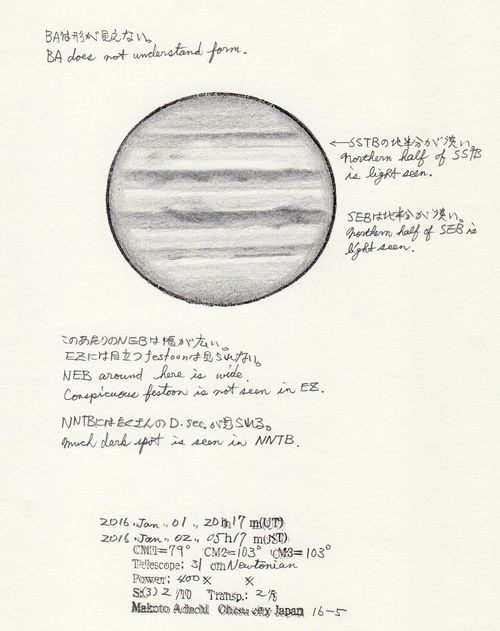 BAは形が見えない。
BA does not understand form.
←SSTBの北半分が淡い。
Northern half of SSTB
is light seen.
SEBは北半分が淡い。
Northern half of SEB is
light seen.
このあたりのNEBは幅が広い。
EZには目立つfestoonは見られない。
NEB around here is wide.
Conspicuous festoon is not seen in EZ.
NNTBにはたくさんのD.sec.が見られる。
Much dark spot is seen in NNTB.
2016.Jan.,01., 20h17 m(UT)
2016.Jan.,02., 05h17 m(JST)
CM1=79° CM2=103° CM3=103°
Telescope: 31 cm Newtonian
Power: 400× ×
S:(3) 2 /10 Transp.: 2/5
Makoto Adachi Ohtsu city Japan 16-5